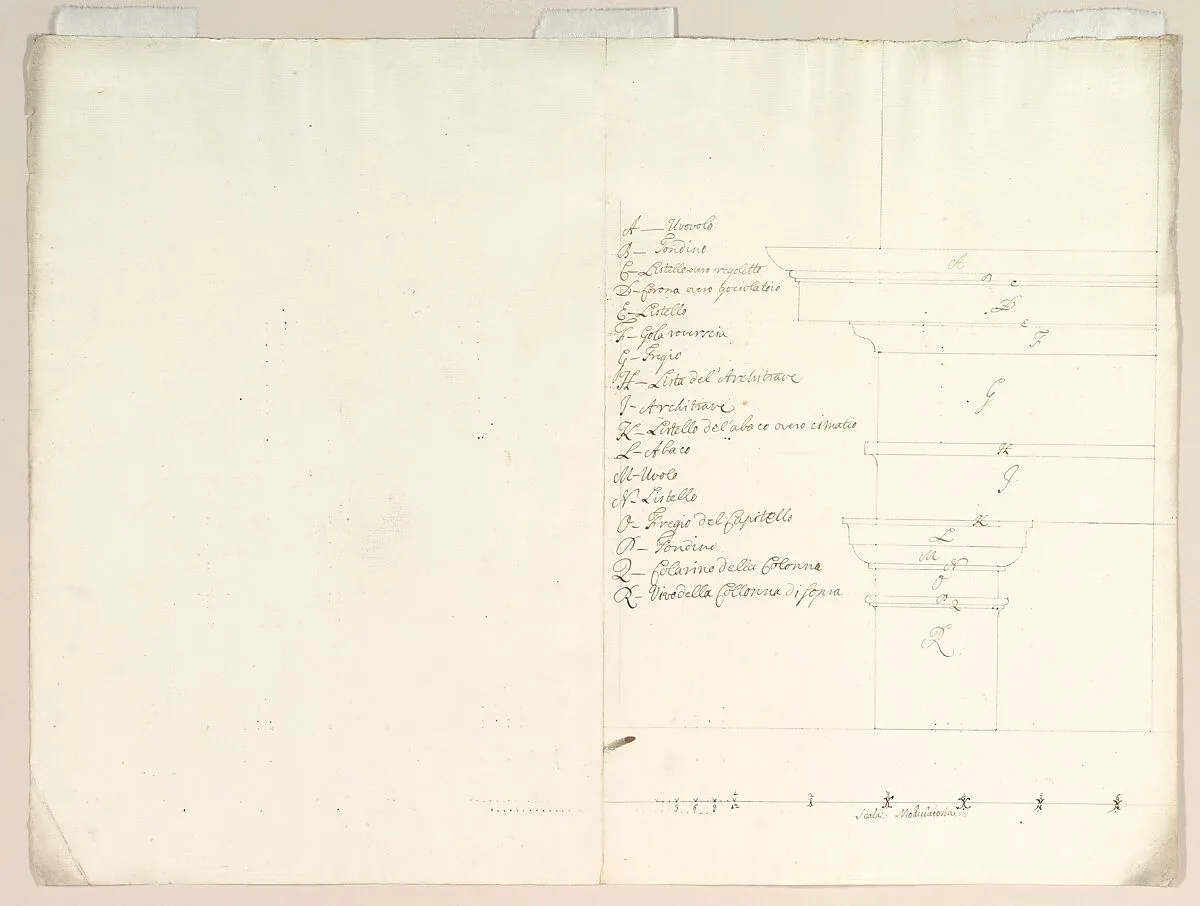 A — Uvovolo
B — Tondino
C — Listello overo regoletto
D — Corona overo gociolatoio
E — Listello
F — Gola roverscia
G — Fregio
H — Lista del' Architrave
I — Architrave
K — Listello del'abaco overo cimatio
L — Abaco
M — Uvolo
N — Listello
O — Fregio del Capitello
P — Tondino
Q — Colarino della Colonna
R — Vivo della Collonna di sopra
A
B C
D
E
F
G
H
I
K
L
M
N
O
P Q
R
3 6 9 12
Scala Modulatoria